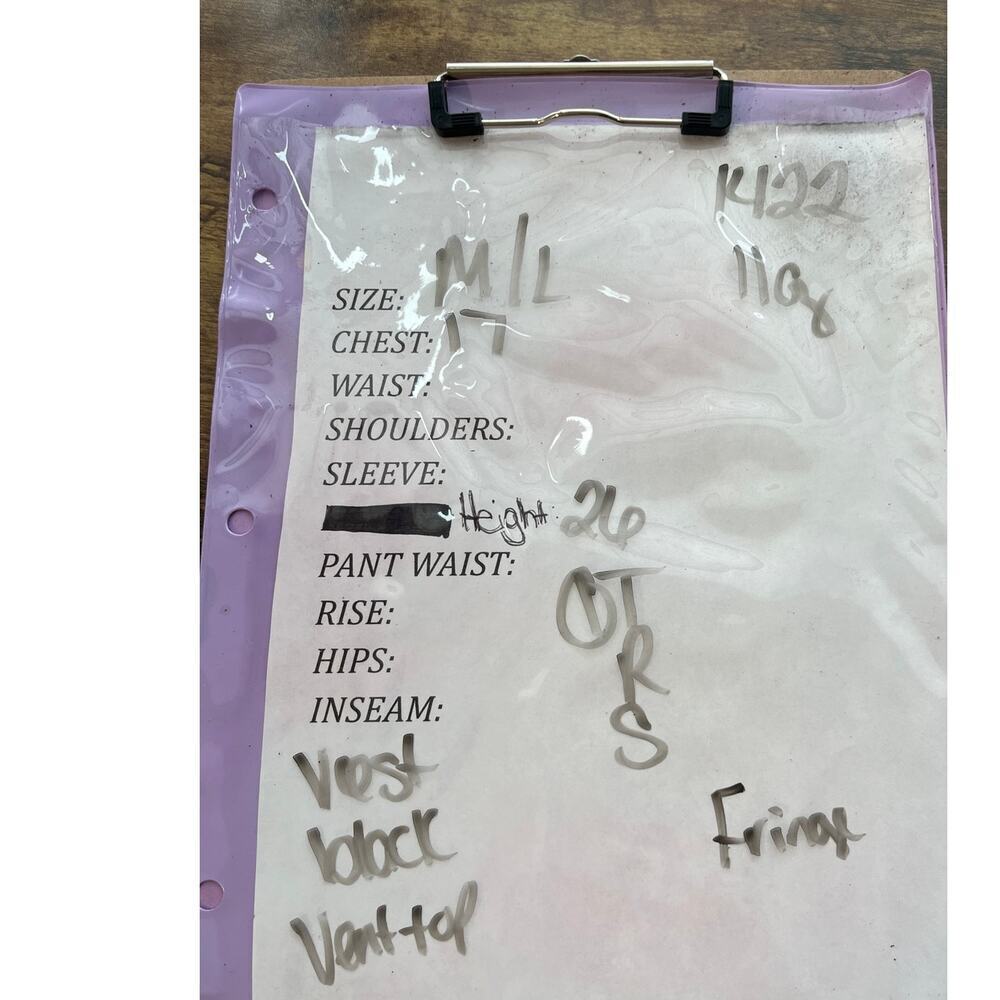 1422
M/L
11oz
SIZE:
CHEST: 17
WAIST:
SHOULDERS:
SLEEVE:
Height: 26
PANT WAIST:
RISE:
HIPS:
INSEAM:
T
R
S
Vest
black
Fringe
Vent top